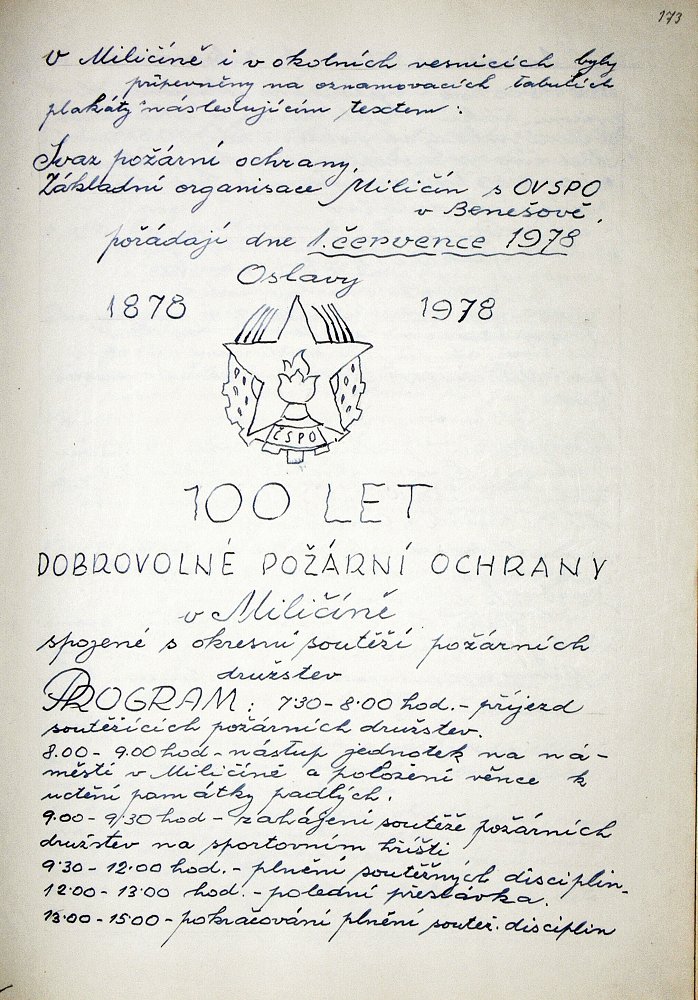 173
V Miličíně i v okolních vesnicích byly
připevněny na oznamovacích tabulích
plakáty následujícím textem:
Svaz požární ochrany,
Základní organisace Miličín s OVSPO
v Benešově,
pořádají dne 1. července 1978
Oslavy
1878 1978
ČSPO
100 LET
DOBROVOLNÉ POŽÁRNÍ OCHRANY
v Miličíně
spojené s okresní soutěží požárních
družstev
PROGRAM: 7.30 - 8.00 hod. - příjezd
soutěžících požárních družstev.
8.00 - 9.00 hod - nástup jednotek na ná-
městí v Miličíně a položení věnce k
uctění památky padlých.
9.00 - 9.30 hod - zahájení soutěže požárních
družstev na sportovním hřišti
9.30 - 12.00 hod. - plnění soutěžných disciplin.
12.00 - 13.00 hod. - polední přestávka.
13.00 - 15.00 - pokračování plnění soutěž. disciplin